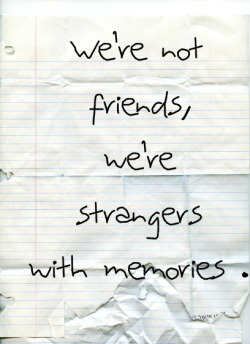 we're not
friends,
we're
strangers
with memories .